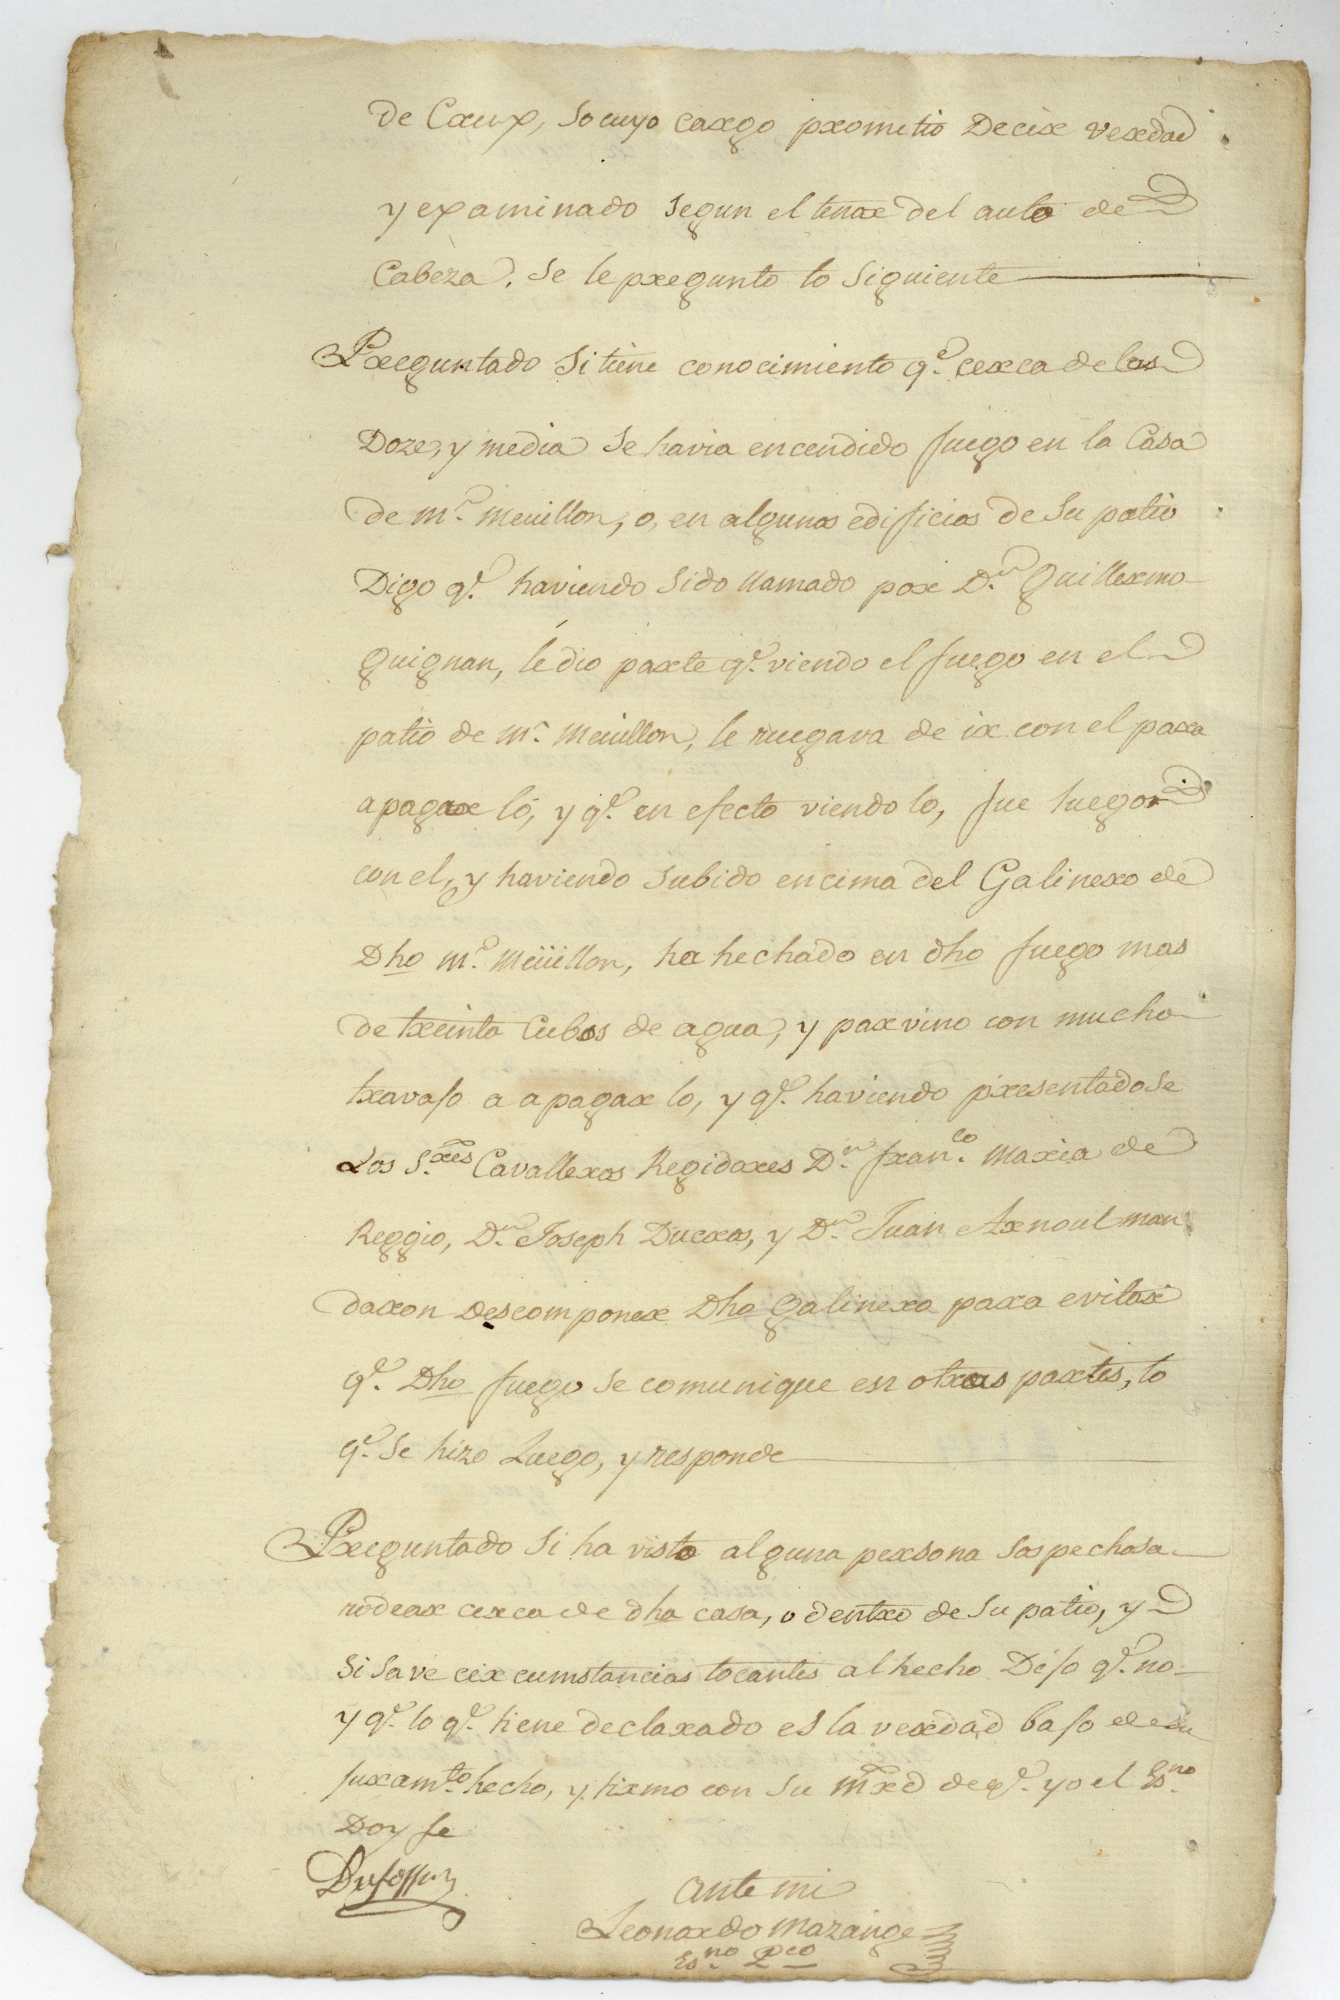 de Cruz, so cuyo cargo prometio Decir verdad
y examinado segun el tenor del auto de
Cabeza. se le pregunto lo siguiente
Preguntado si tiene conocimiento q.e cerca de las
Doze, y media se havia encendido fuego en la Casa
de M.r Meuillon, o, en algunos edificios de su patio
Digo q.e haviendo sido llamado por D.n Guillermo
Guignan, le dio parte q.e viendo el fuego en el
patio de M.r Meuillon, le ruegava de ir con el para
apagar lo, y q.e en efecto viendo lo, fue luego
con el, y haviendo subido encima del Galinero de
Dho M.r Meüillon, ha hechado en dho fuego mas
de treinta Cubos de agua, y parvino con mucho
travajo a apagar lo, y q.e haviendo presentadose
Los S.res Cavalleros Regidores D.n Fran.co Maria de
Reggio, D.n Joseph Ducros, y D.n Juan Arnoul man
daron descomponer Dho Galinero para evitar
q.e Dho fuego se comunique en otras partes, lo
q.e se hizo Luego, y responde
Preguntado si ha visto alguna persona sospechosa
rodear cerca de dha casa, o dentro de su patio, y
si save circumstancias tocantes al hecho Dijo q.e no
y q.e lo q.e tiene declarado es la verdad bajo de su
juram.to hecho, y firmo con su mrd de q.e yo el Es.no
Doy fe
Dufossu
Ante mi
Leonardo Mazange
Es.no P.co